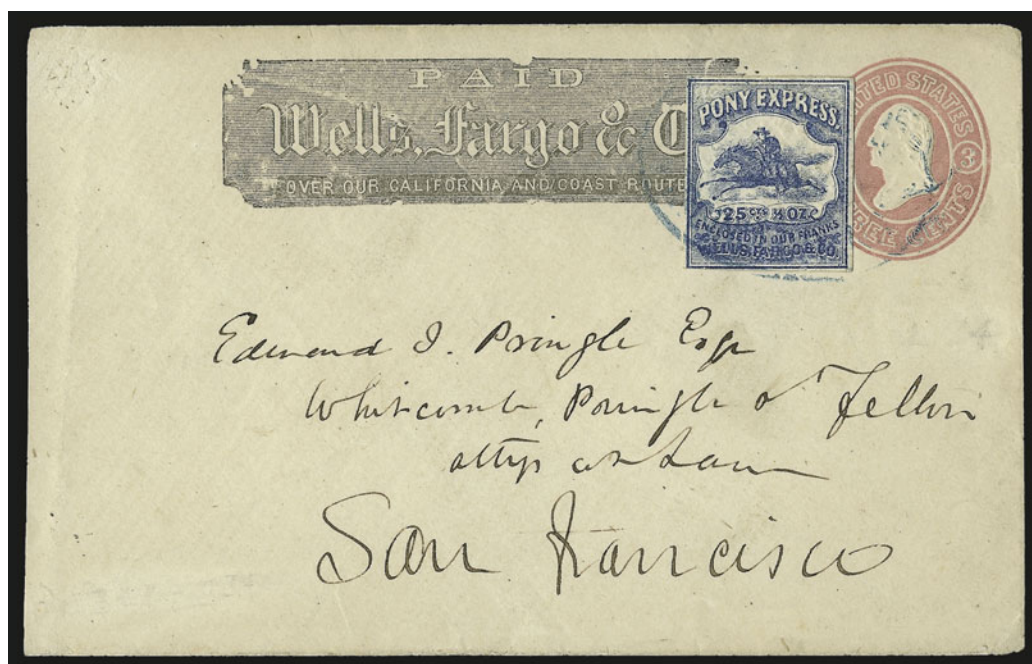 PAID
Wells, Fargo & C
OVER OUR CALIFORNIA AND COAST ROUTE
PONY EXPRESS.
25 CTS ½ OZ.
ENCLOSED IN OUR FRANKS
WELLS, FARGO & CO.
UNITED STATES
3
THREE CENTS
Edward J. Pringle Esqr
Whitcomb, Pringle & Felton
attys at Law
San Francisco